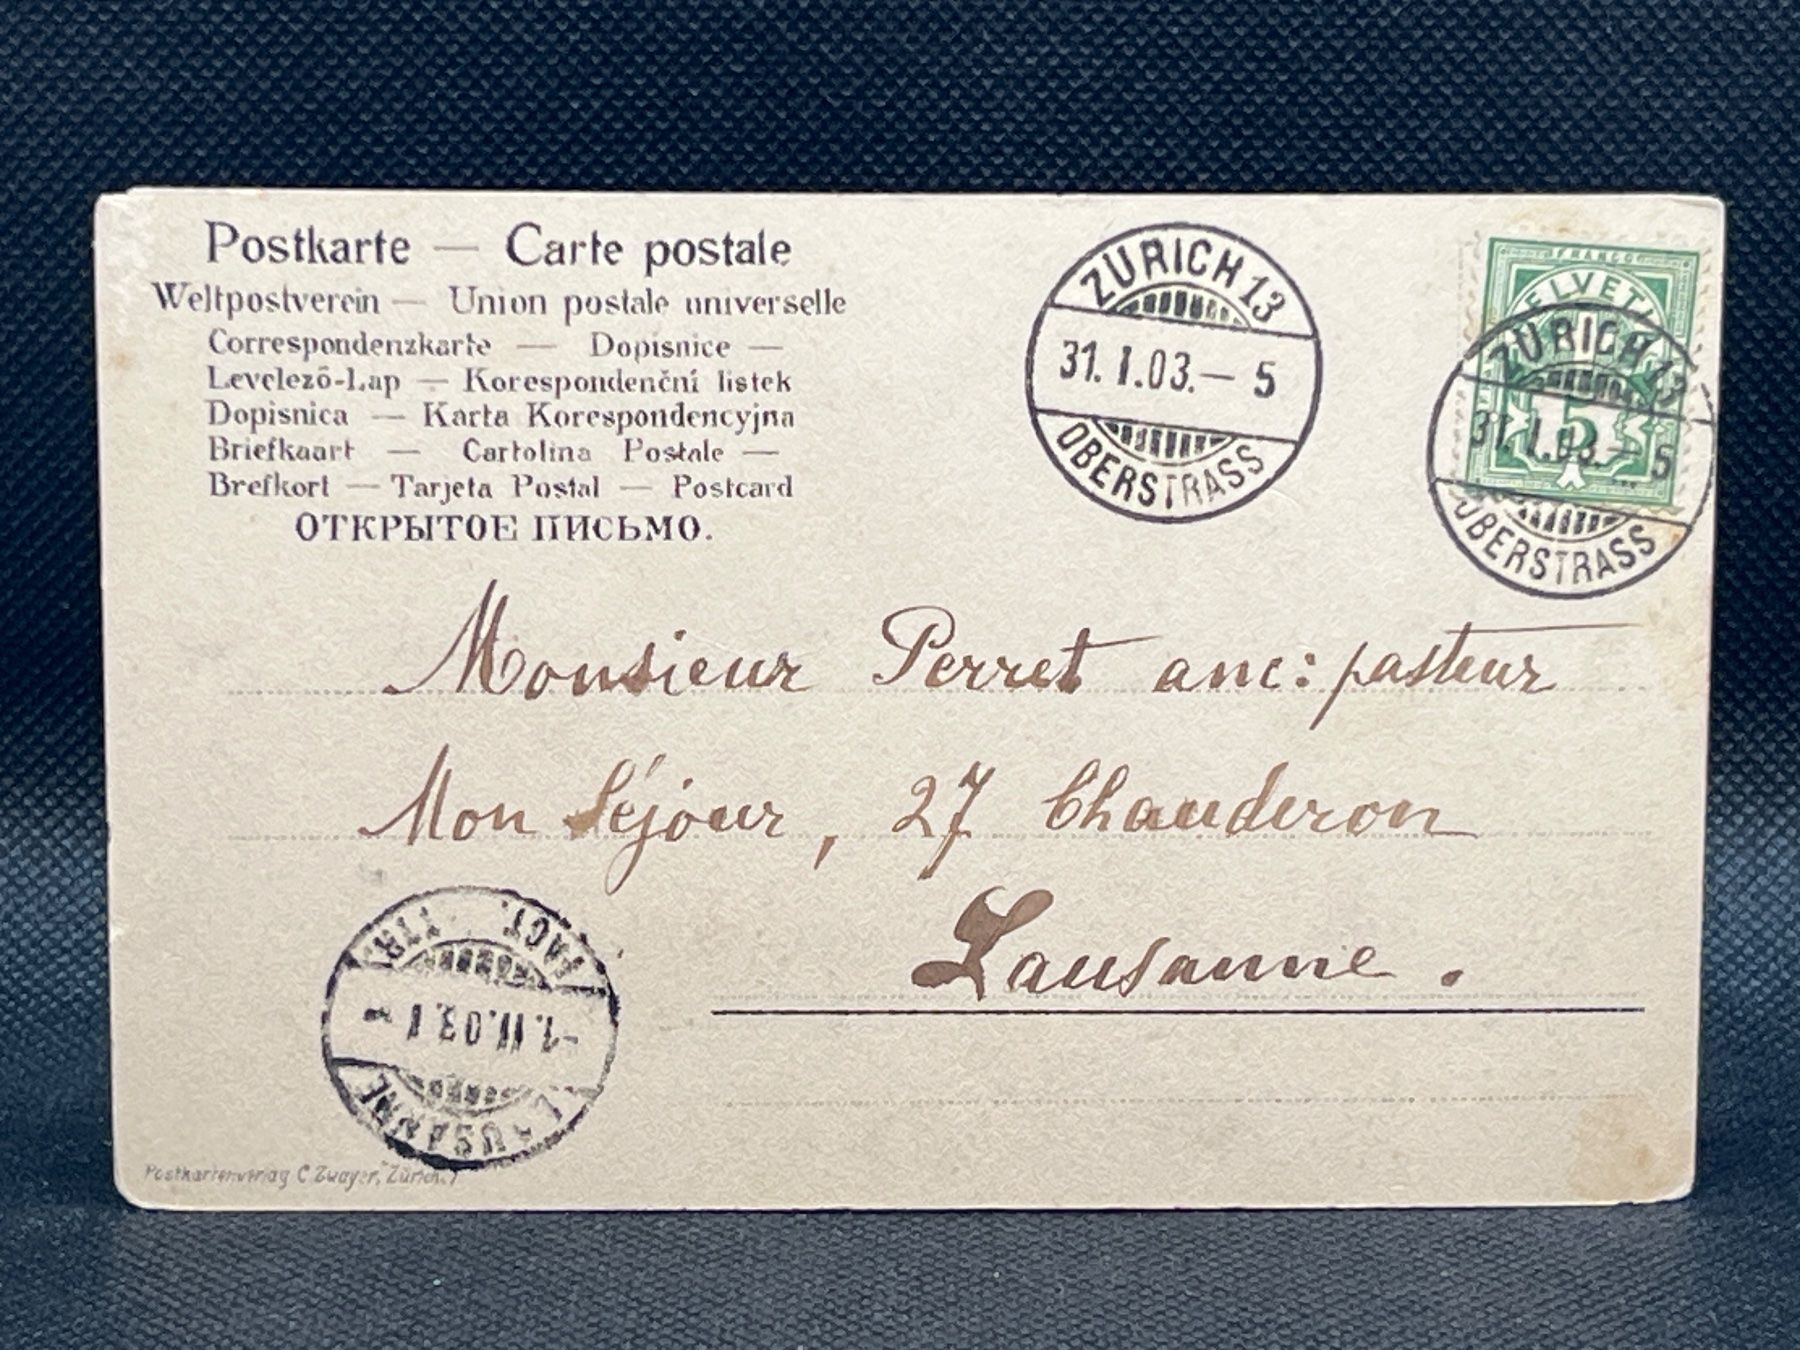 Postkarte — Carte postale
Weltpostverein — Union postale universelle
Correspondenzkarte — Dopisnice —
Levelező-Lap — Korespondenční lístek
Dopisnica — Karta Korespondencyjna
Briefkaart — Cartolina Postale —
Brefkort — Tarjeta Postal — Postcard
ОТКРЫТОЕ ПИСЬМО.
ZÜRICH 13
31. I. 03. — 5
OBERSTRASS
FRANCO
HELVETIA
5
ZÜRICH 13
31. I. 03. — 5
OBERSTRASS
Monsieur Perret anc: pasteur
Mon Séjour, 27 Chauderon
Lausanne.
LAUSANNE
-1.II.03. I
Postkartenverlag C. Zwayer, Zürich.